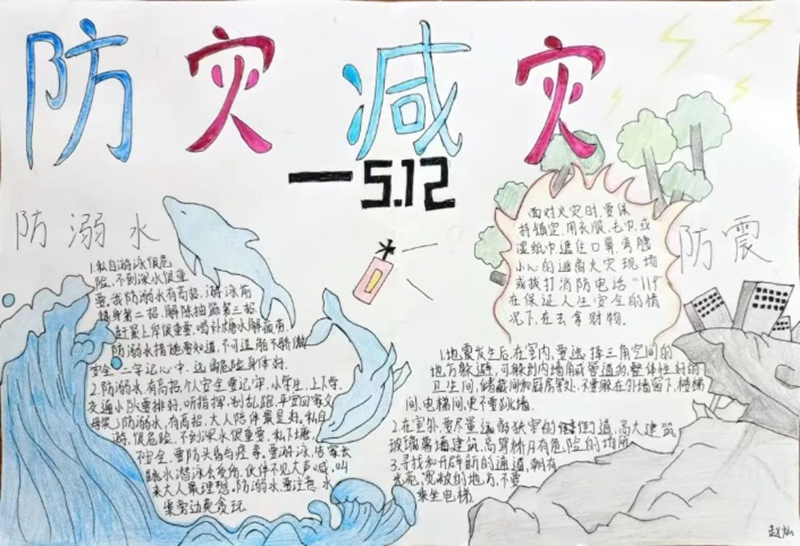 防灾减灾
一5.12
防溺水
1.私自游泳很危
险,不到深水很重
要,我防溺水有高招,游泳前
热身第二招,解除抽筋第三招,
赶紧上岸很重要,喝补糖水解疲劳,
防溺水措施要知道,不可逞能不骄傲
安全二字记心中,远离危险身体好.
2.防溺水有高招,个人安全要记牢,小学生,上下学,
交通小队要排好,听指挥,别乱跑,平安回家父
母笑,防溺水,有高招,大人陪伴最是好.私自
游,很危险,不到深水很重要,私下塘
不安全,要防头昏与痉挛,要游泳,告家长
跳水潜泳去夜角,伙伴不见大声喊,叫
来大人最理想,防溺水,要注意,水
里劳动莫贪玩
面对火灾时,要保
持镇定,用衣服、毛巾,或
湿纸巾遮住口鼻,弯腰
小心的逃离火灾现场
或拨打消防电话"119"
在保证人生安全的情
况下,在去拿财物.
防震
1.地震发生后,在室内,要选择三角空间的
地方躲避,可躲到内墙角或管道的,整体性好的
卫生间,储藏间和厨房等处,不要躲在外墙窗下,楼梯
间,电梯间,更不要跳墙.
2.在室外,要尽量远离狭窄的街道,高大建筑
玻璃幕墙建筑,高架桥月有危险的场所
3.寻找和开辟新的通道,朝有
光亮,宽敞的地方,不要
乘坐电梯